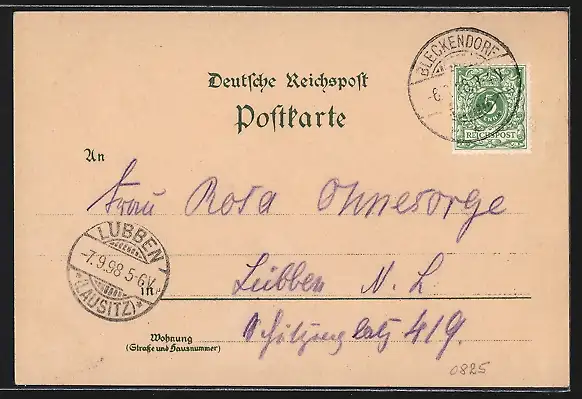 BLECKENDORF
-6.
5
REICHSPOST
Deutsche Reichspost
Postkarte
An
Frau Rosa Ohnesorge
LÜBBEN
-7.9.98 5-6V.
*(LAUSITZ)*
in
Lübben N. L.
Wohnung
(Straße und Hausnummer)
Schützenplatz 419.
0825